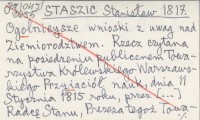 STASZIC Stanisław 1817.
Ogólniejsze wnioski z uwag nad
Ziemiorodztwem. Rzecz czytana
na posiedzeniu publicznem Towa-
rzystwa Królewskiego Warszaws-
kiego Przyjaciół nauk, dnia 11
Stycznia 1815 roku, przez
Radcę Stanu, Prezesa tegoż Towa-